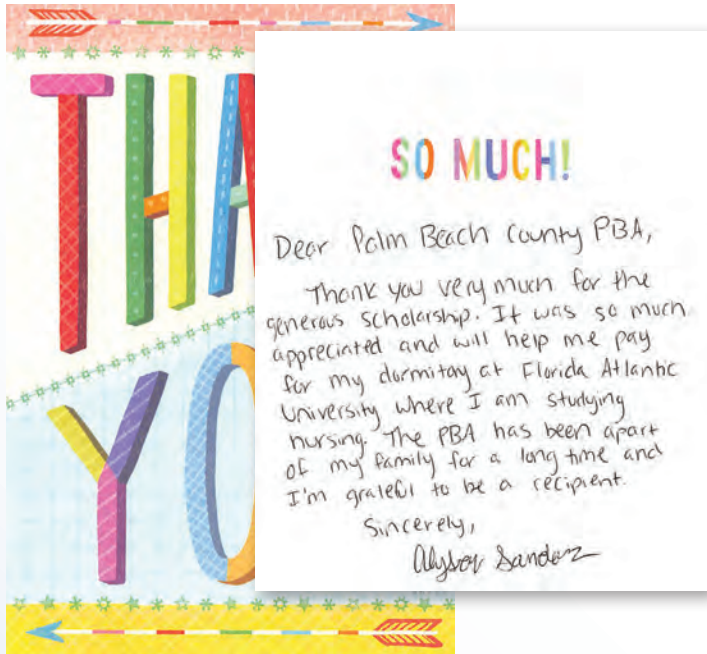 THA
YO
SO MUCH!
Dear Palm Beach County PBA,
Thank you very much for the
generous scholarship. It was so much
appreciated and will help me pay
for my dormitory at Florida Atlantic
University where I am studying
nursing. The PBA has been apart
of my family for a long time and
I'm grateful to be a recipient.
Sincerely,